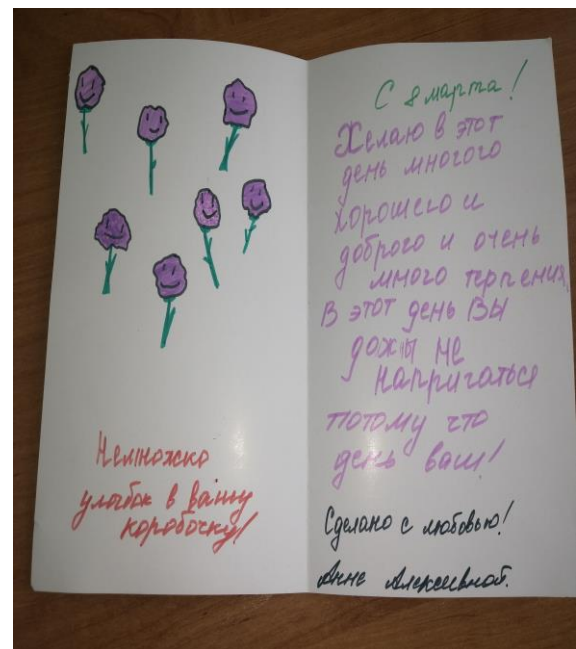 Немножко
улыбок в вашу
коробочку!
С 8 марта!
Желаю в этот
день многого
хорошего и
доброго и очень
много терпения
В этот день Вы
дожы не
напригаться
потому что
день ваш!
Сделано с любовью!
Анне Алексеивной.